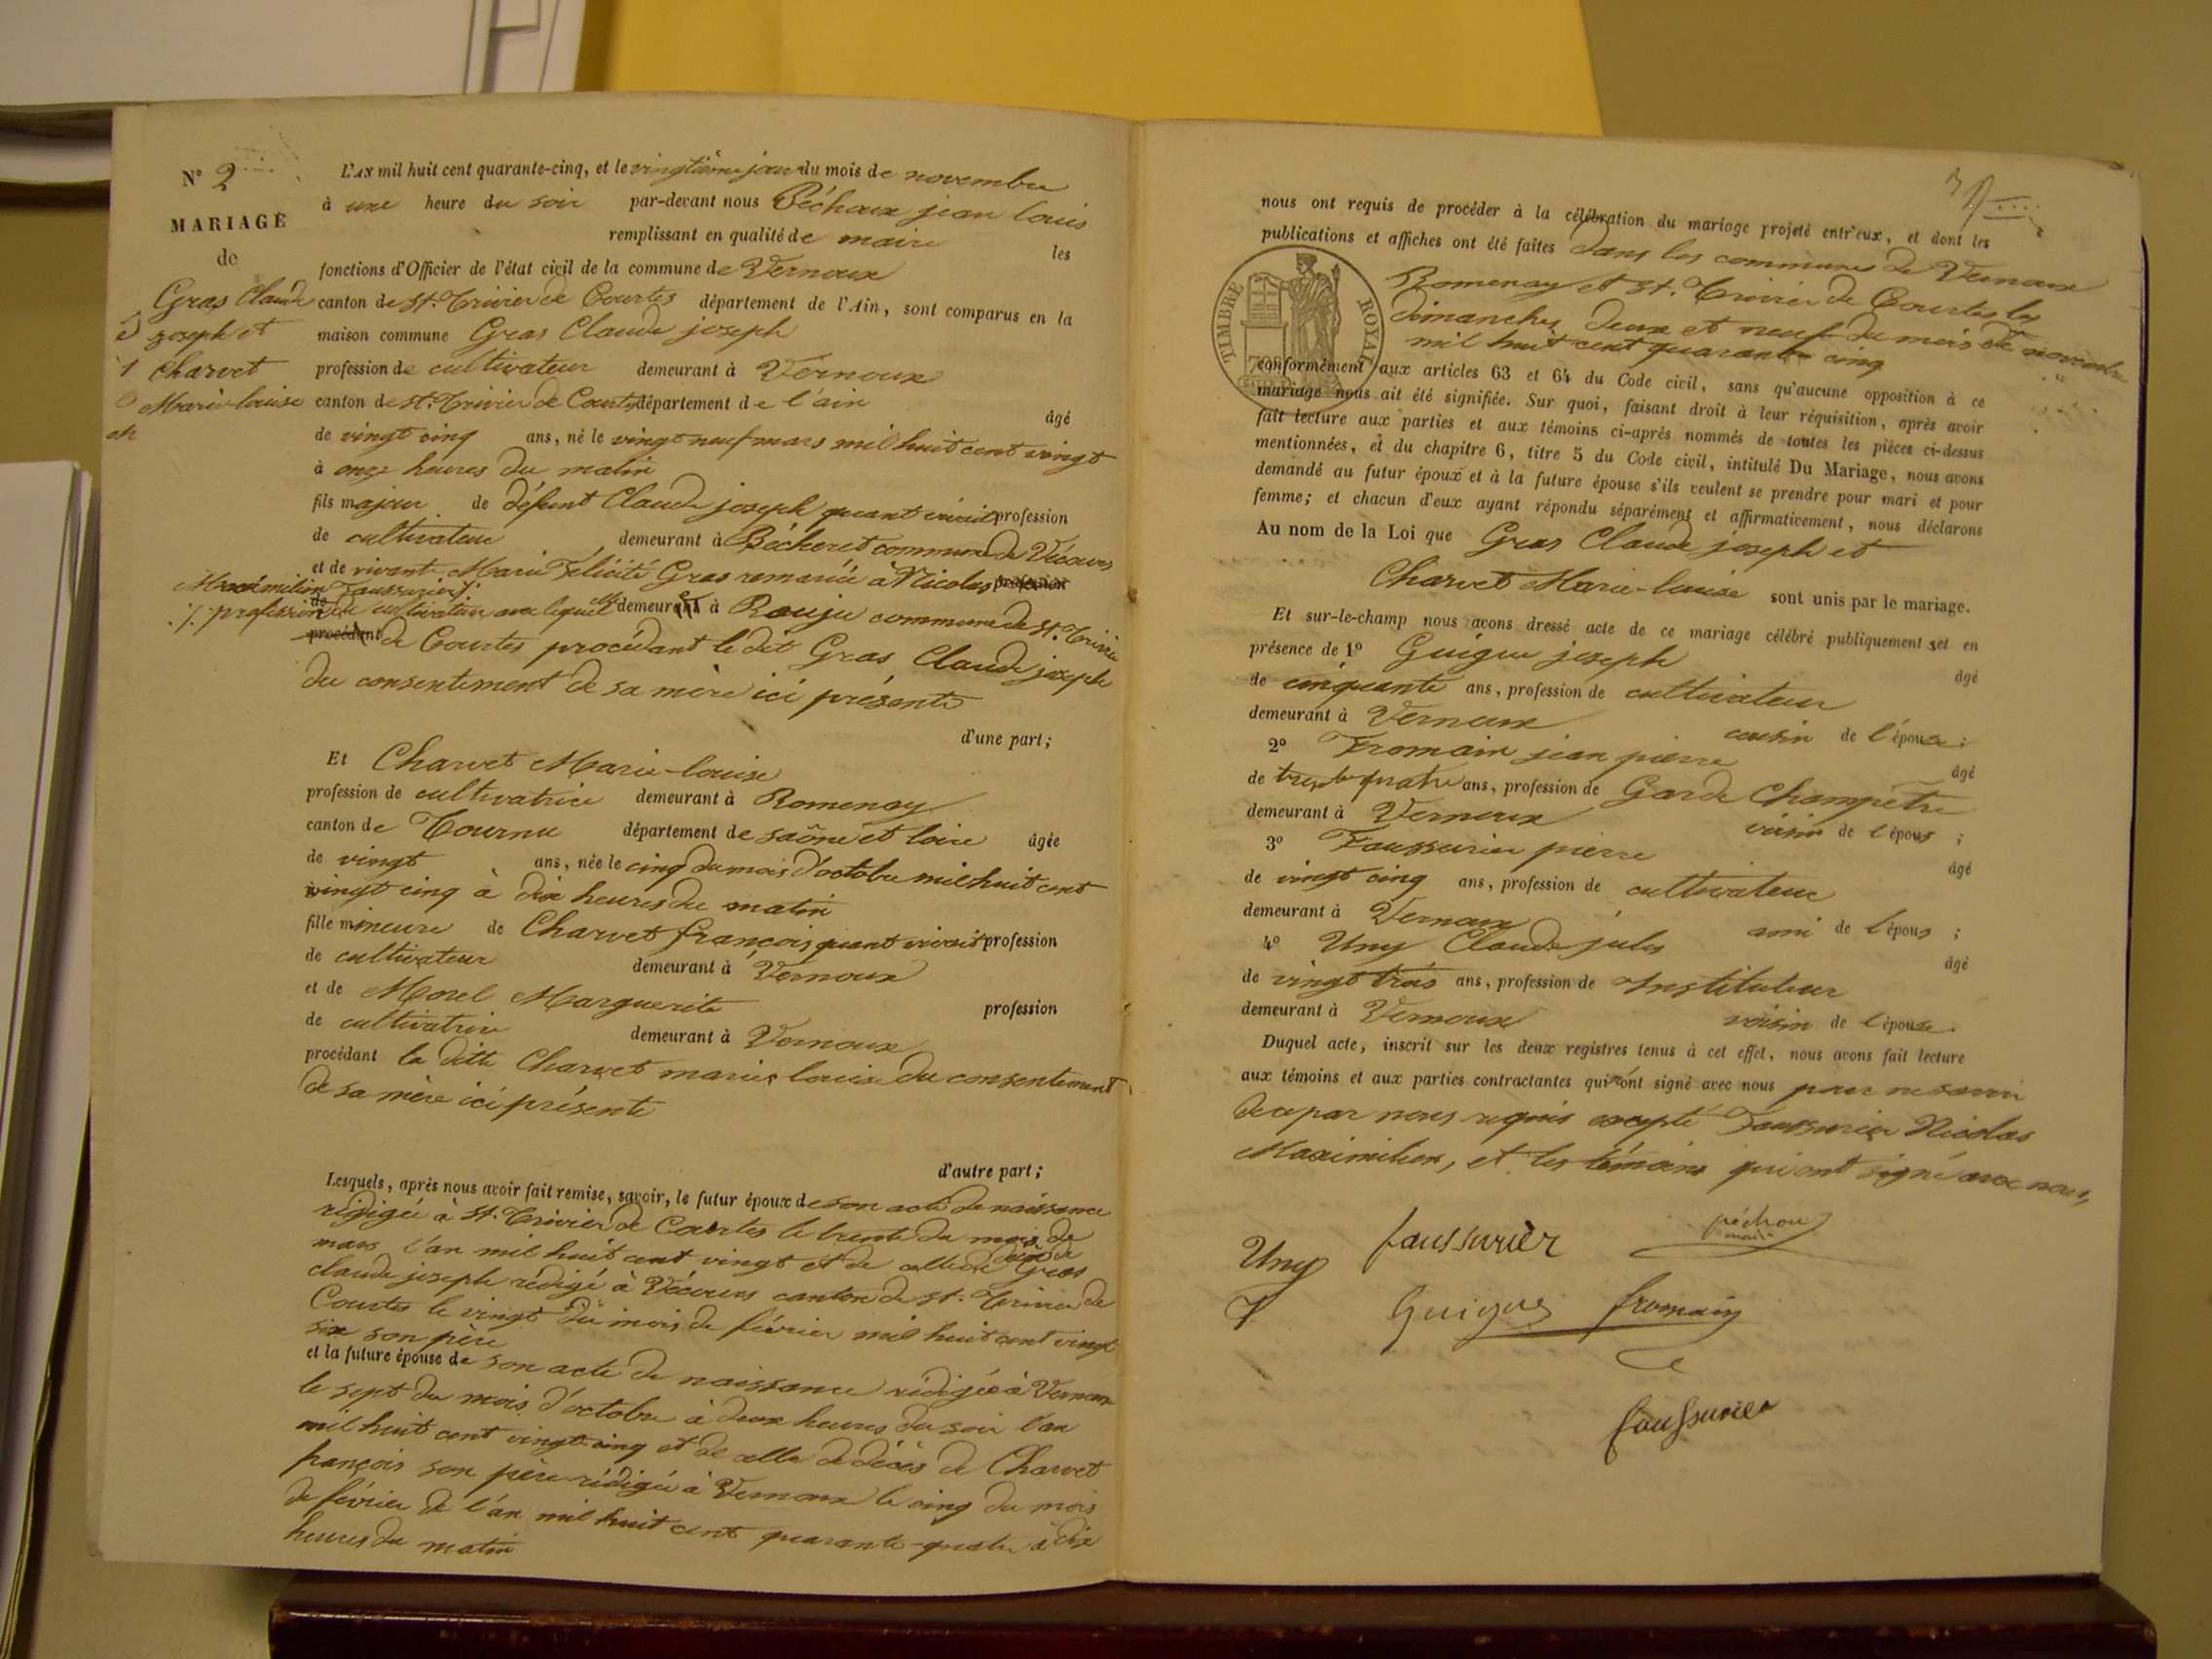 N° 2
MARIAGE
de
Gras Claude
joseph et
Charvet
Marie-louise
L'AN mil huit cent quarante-cinq, et le vingtième jour du mois de novembre
à une heure du soir par-devant nous Péchoux jean louis
remplissant en qualité de maire les
fonctions d'Officier de l'état civil de la commune de Vernoux
canton de St. Trivier de Courtes département de l'Ain, sont comparus en la
maison commune Gras Claude joseph
profession de cultivateur demeurant à Vernoux
canton de St. Trivier de Courtes département de l'ain âgé
de vingt cinq ans, né le vingt neuf mars mil huit cent vingt
à onze heures du matin
fils majeur de défunt Claude joseph quant vivait profession
de cultivateur demeurant à Bécheret commune de Vécours
et de vivante Marie Félicité Gras remariée à Nicolas profession
Maximilien Faussurier
./. profession de cultivateur avec lequel elle demeurant à Rouju commune de St. Trivier
procédant de Courtes procédant le dit Gras Claude joseph
du consentement de sa mère ici présente
d'une part;
Et Charvet Marie-louise
profession de cultivatrice demeurant à Romenay
canton de Tournu département de saône et loire âgée
de vingt ans, née le cinq du mois d'octobre mil huit cent
vingt cinq à dix heures du matin
fille mineure de Charvet françois quant vivait profession
de cultivateur demeurant à Vernoux
et de Morel Marguerite profession
de cultivatrice demeurant à Vernoux
procédant la ditte Charvet marie louise du consentement
de sa mère ici présente
d'autre part;
Lesquels, après nous avoir fait remise, savoir, le futur époux de son acte de naissance
rédigée à St. Trivier de Courtes le trente du mois de
mars l'an mil huit cent vingt et de celle de décès de Gras
claude joseph rédigé à Vécours canton de St. Trivier de
Courtes le vingt du mois de février mil huit cent vingt
six son père
et la future épouse de son acte de naissance rédigée à Vernoux
le sept du mois d'octobre à deux heures du soir l'an
mil huit cent vingt cinq et de celle de décès de Charvet
françois son père rédigée à Vernoux le cinq du mois
de février de l'an mil huit cent quarante-quatre à dix
heures du matin
nous ont requis de procéder à la célébration du mariage projeté entr'eux, et dont les
publications et affiches ont été faites dans les communes de Vernoux
Romenay et St. Trivier de Courtes les
dimanches deux et neuf du mois de novembre
mil huit cent quarante cinq
TIMBRE ROYAL
conformément aux articles 63 et 64 du Code civil, sans qu'aucune opposition à ce
mariage nous ait été signifiée. Sur quoi, faisant droit à leur réquisition, après avoir
fait lecture aux parties et aux témoins ci-après nommés de toutes les pièces ci-dessus
mentionnées, et du chapitre 6, titre 5 du Code civil, intitulé Du Mariage, nous avons
demandé au futur époux et à la future épouse s'ils veulent se prendre pour mari et pour
femme; et chacun d'eux ayant répondu séparément et affirmativement, nous déclarons
Au nom de la Loi que Gras Claude joseph et
Charvet Marie-louise sont unis par le mariage.
Et sur-le-champ nous avons dressé acte de ce mariage célébré publiquement et en
présence de 1° Guigue joseph âgé
de cinquante ans, profession de cultivateur
demeurant à Vernoux cousin de l'épouse;
2° Fromain jean pierre âgé
de trente quatre ans, profession de Garde Champêtre
demeurant à Vernoux voisin de l'époux;
3° Faussurier pierre âgé
de vingt cinq ans, profession de cultivateur
demeurant à Vernoux ami de l'époux;
4° Uny Claude jules âgé
de vingt trois ans, profession de Instituteur
demeurant à Vernoux voisin de l'épouse.
Duquel acte, inscrit sur les deux registres tenus à cet effet, nous avons fait lecture
aux témoins et aux parties contractantes qui n'ont signé avec nous pour ne savoir
de ce par nous requis excepté Faussurier Nicolas
Maximilien, et les témoins qui ont signé avec nous,
Uny faussurier péchoux
maire
Guigue fromain
faussurier